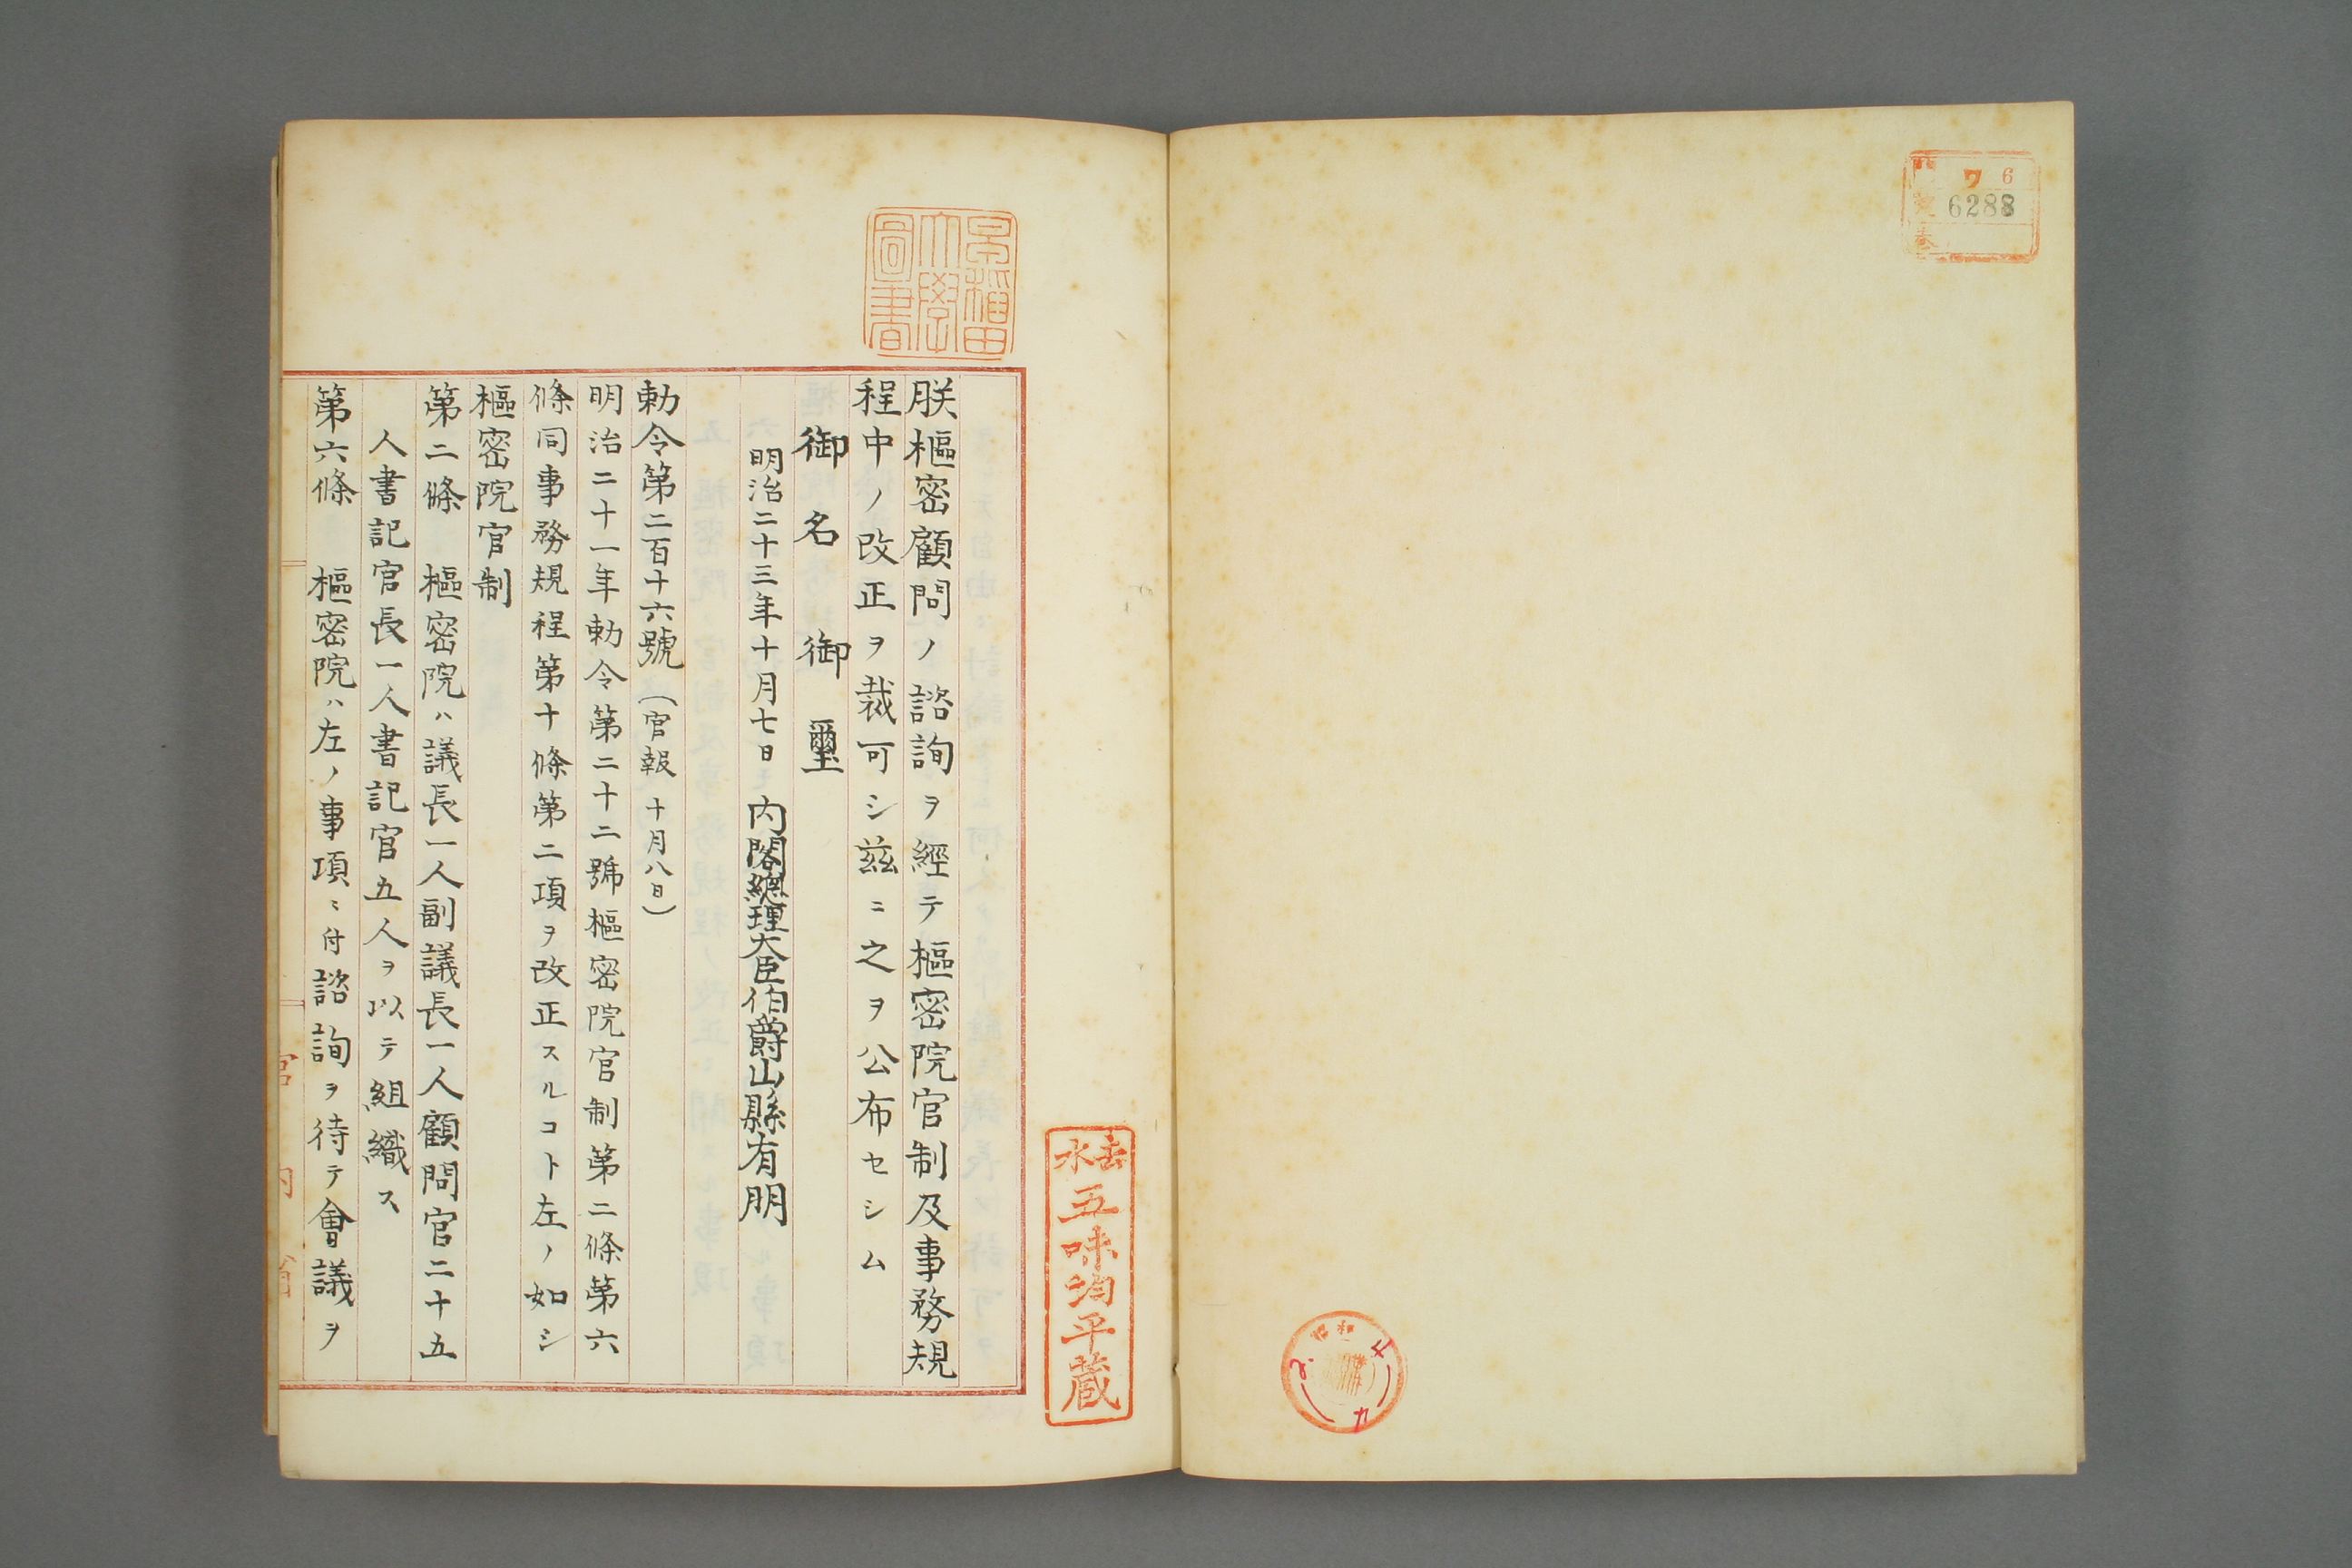 ワ 6
6288
早稲田大學圖書
朕樞密顧問ノ諮詢ヲ經テ樞密院官制及事務規
程中ノ改正ヲ裁可シ茲ニ之ヲ公布セシム
御名御璽
明治二十三年十月七日 内閣總理大臣伯爵山縣有朋
勅令第二百十六號(官報 十月八日)
明治二十一年勅令第二十二號樞密院官制第二條第六
條同事務規程第十條第二項ヲ改正スルコト左ノ如シ
樞密院官制
第二條 樞密院ハ議長一人副議長一人顧問官二十五
人書記官長一人書記官五人ヲ以テ組織ス
第六條 樞密院ハ左ノ事項ニ付諮詢ヲ待テ會議ヲ
宮内省
五味均平蔵
昭和